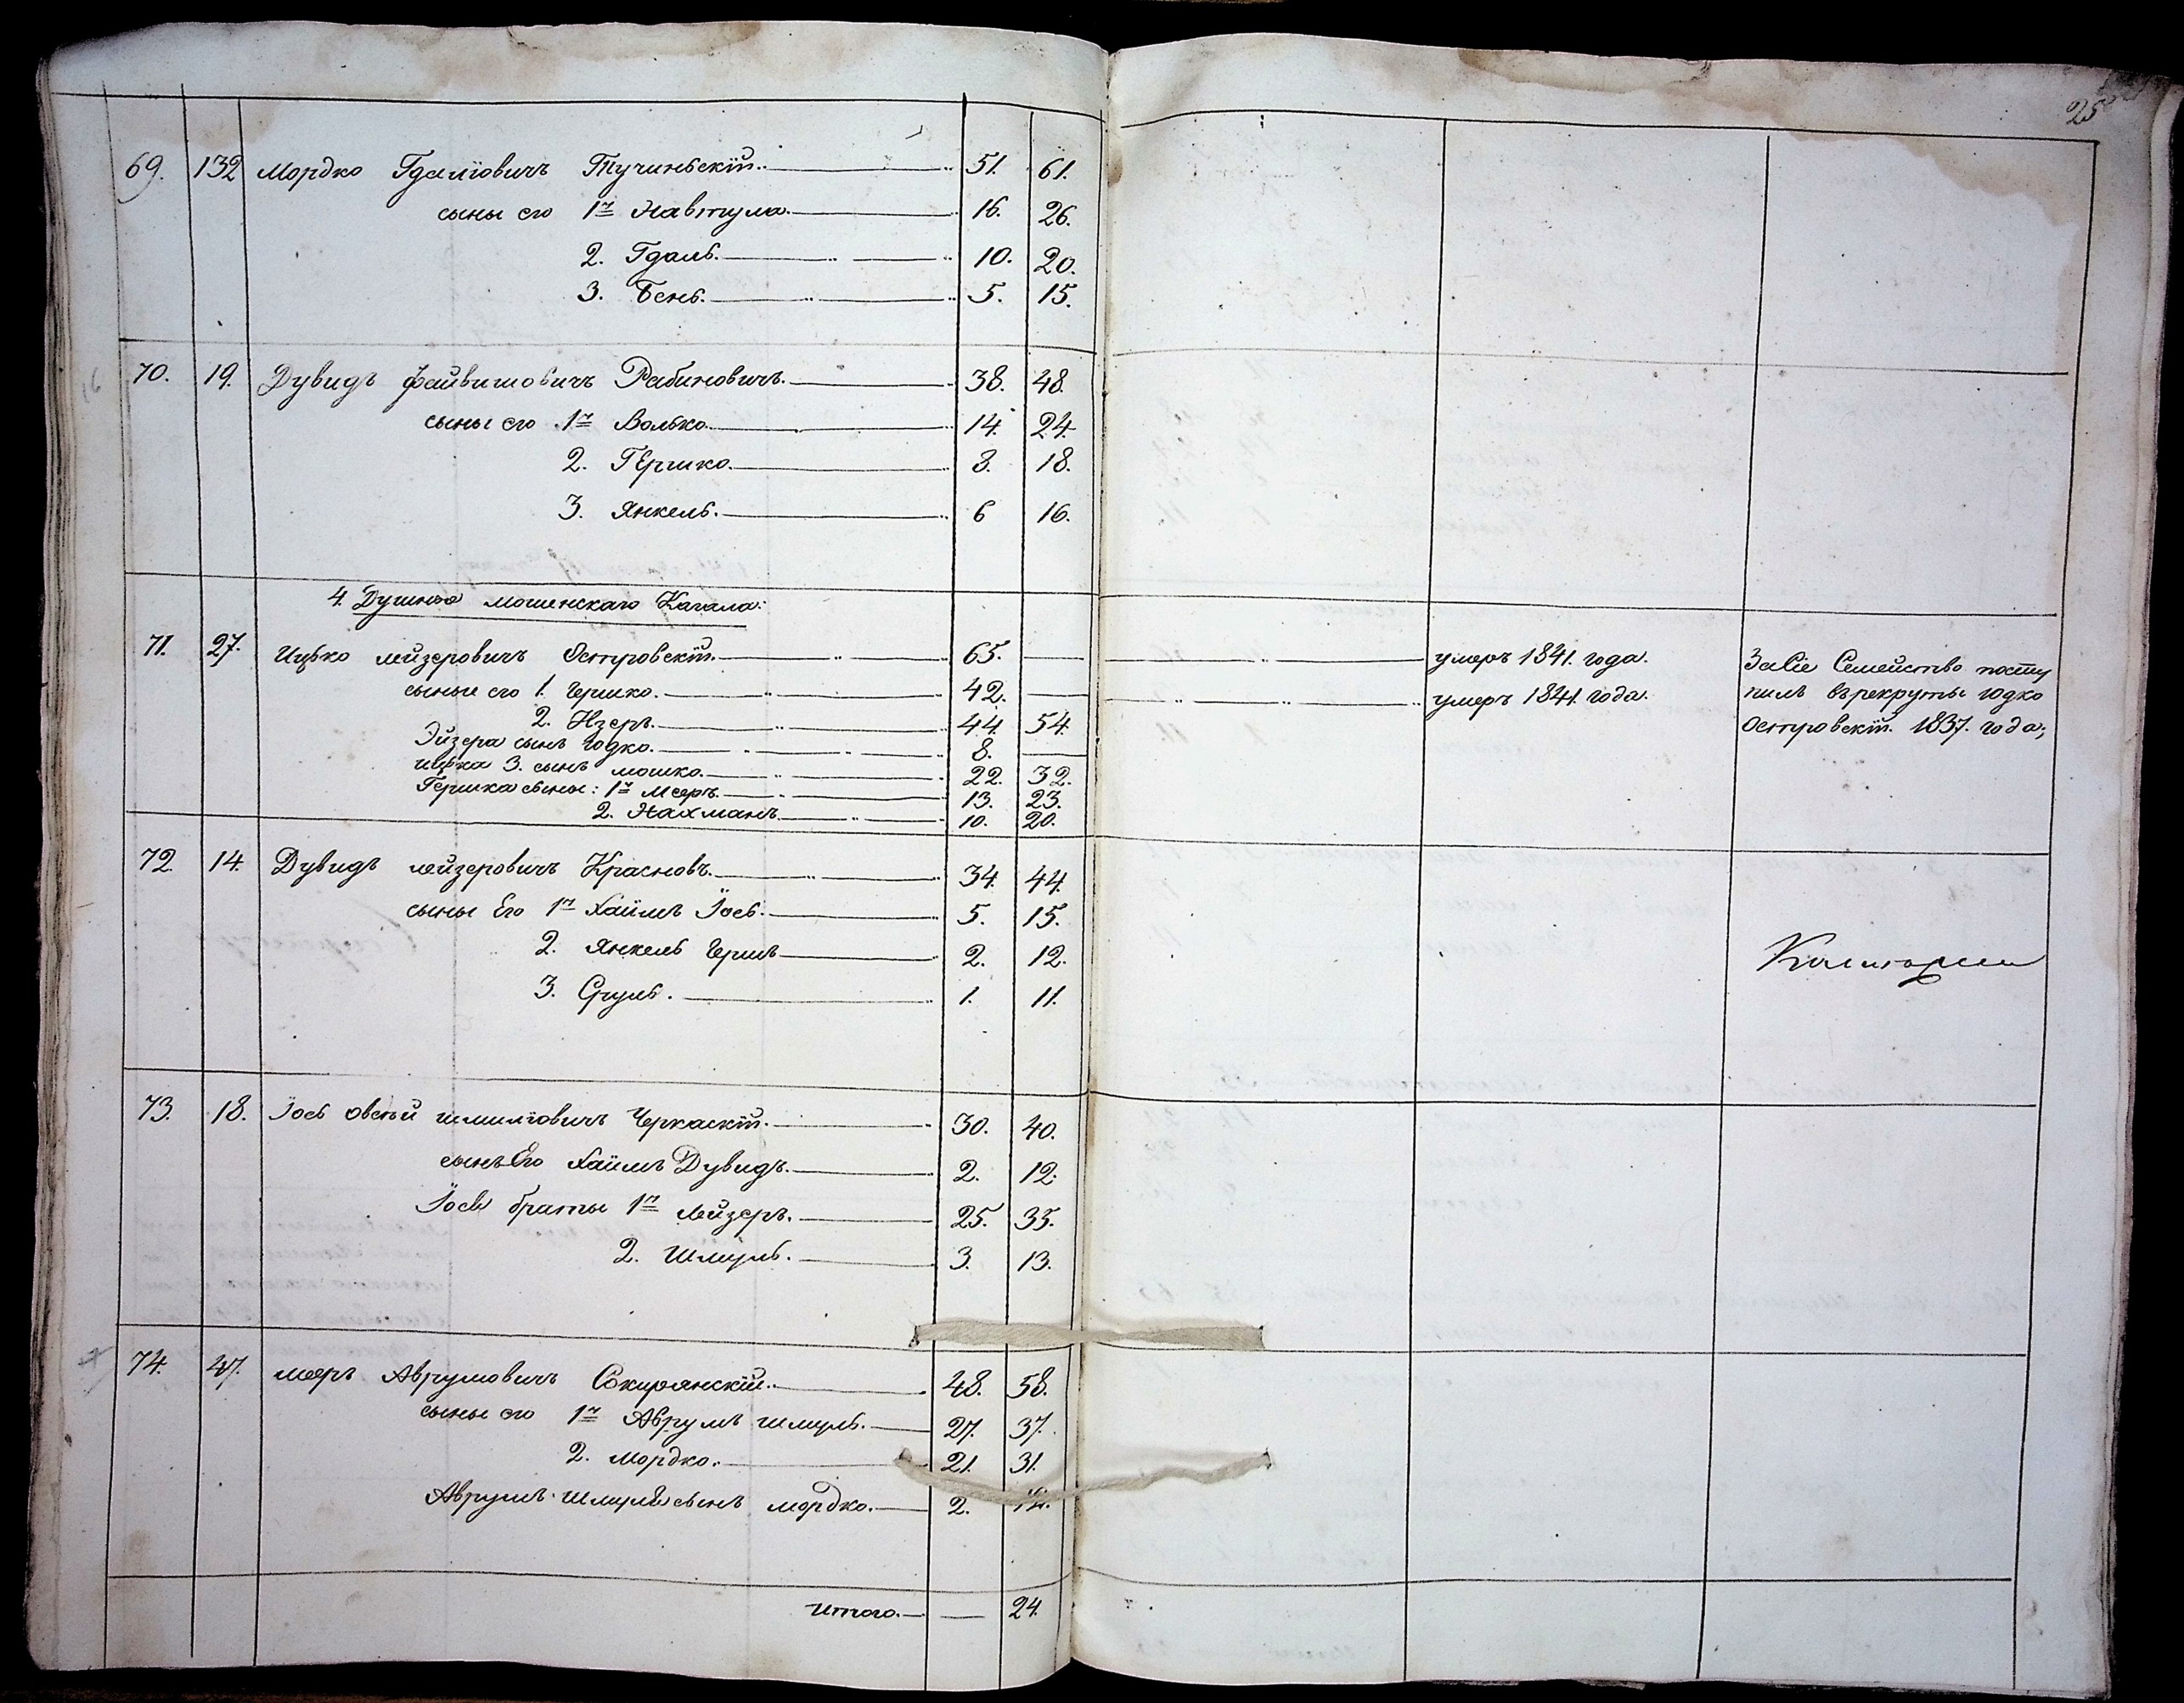 25
69. 132 Мордко Гдалiовичъ Тучиньскiй. 51. 61.
сыны его 1й Навтула. 16. 26.
2. Гдаль. 10. 20.
3. Бень. 5. 15.
70. 19. Дувидъ файвишовичъ Рабиновичъ. 38. 48.
сыны его 1й Волько. 14. 24.
2. Гершко. 8. 18.
3. Янкель. 6 16.
4. мошенскаго Кагала:
71. 27. Ицько лейзеровичъ Островскiй. 65. — умеръ 1841. года. За Сiе Семейство посту
сыны его 1. Гершко. 42. — умеръ 1841. года. пилъ въ рекруты Іодко
2. 44. 54. Островскiй. 1837. года;
сынъ Іодко. 8. —
ицька 3. сынъ мошко. 22. 32.
Гершка сыны: 1й Мееръ. 13. 23.
2. Нахманъ 10. 20.
72. 14. Дувидъ лейзеровичъ Красновъ. 34. 44.
сыны Его 1й Хаимъ Іось. 5. 15.
2. Янкель Герш 2. 12.
3. Сруль. 1. 11.
73. 18. Іось овсѣй шмилiовичъ Черкаскiй. 30. 40.
сынъ Его Хаимъ Дувидъ. 2. 12.
Іося браты 1й Лейзеръ. 25. 35.
2. Шмуль. 3. 13.
74. 47. меръ Аврумовичъ Сокирянскiй. 48. 58.
сыны его 1й Аврумъ шмуль. 27. 37.
2. Мордко. 21. 31.
Аврумъ Шмуля сынъ мордко. 2. 12.
итого. — — 24.